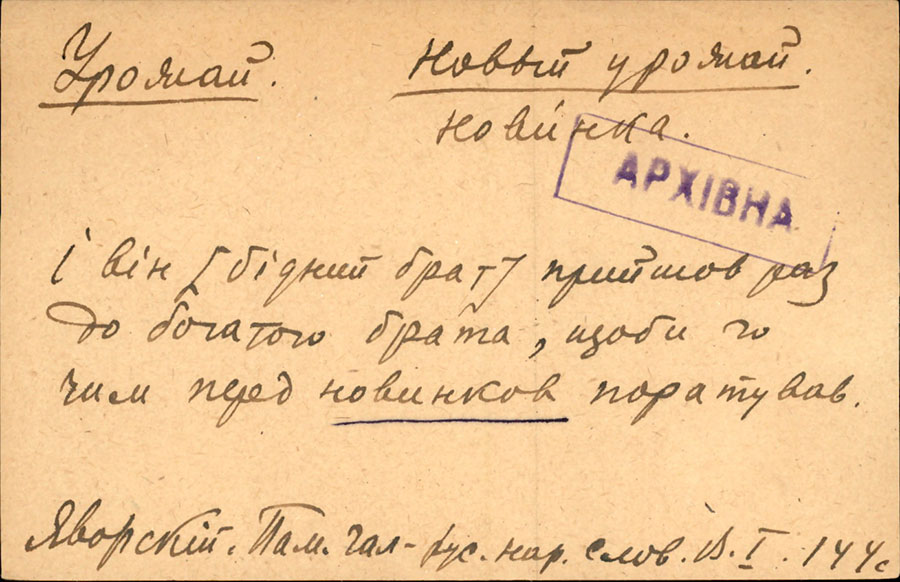 Урожай. Новый урожай.
Нови́нка.
АРХІВНА
і він [бідний брат] прийшов раз
до богатого брата, щоби го
чим перед новинков поратував.
Яворскій. Пам. гал-рус. нар. слов. В. I. 144с